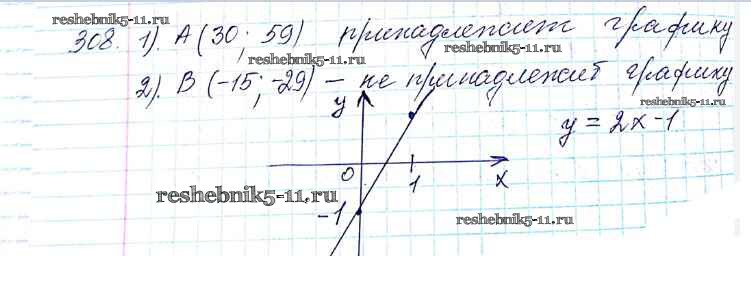 reshebnik5-11.ru
308. 1). A (30; 59) принадлежит графику
reshebnik5-11.ru
2). B (-15; -29) – не принадлежит графику
reshebnik5-11.ru
y
y = 2x-1
0
1
x
reshebnik5-11.ru
-1
reshebnik5-11.ru